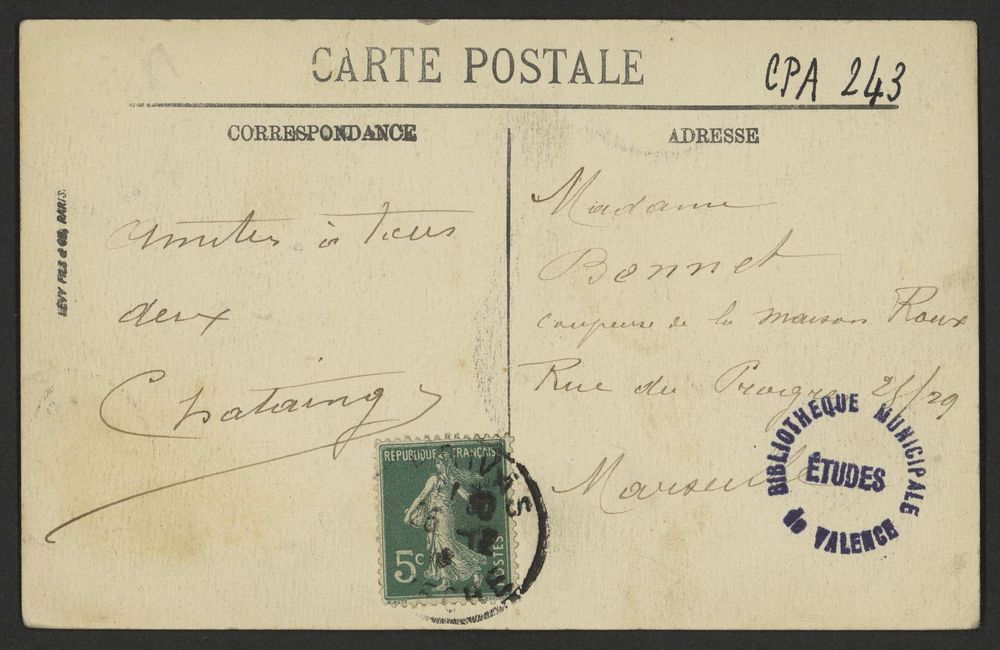 CARTE POSTALE
CPA 243
CORRESPONDANCE
ADRESSE
LÉVY FILS & Cie, PARIS.
Amitiés à tous
deux
Chataing
Madame
Bonnet
coupeuse de la maison Roux
Rue du Progrès 25/29
Marseille
RÉPUBLIQUE FRANÇAISE
5c
POSTES
BIBLIOTHÈQUE MUNICIPALE
ÉTUDES
de VALENCE